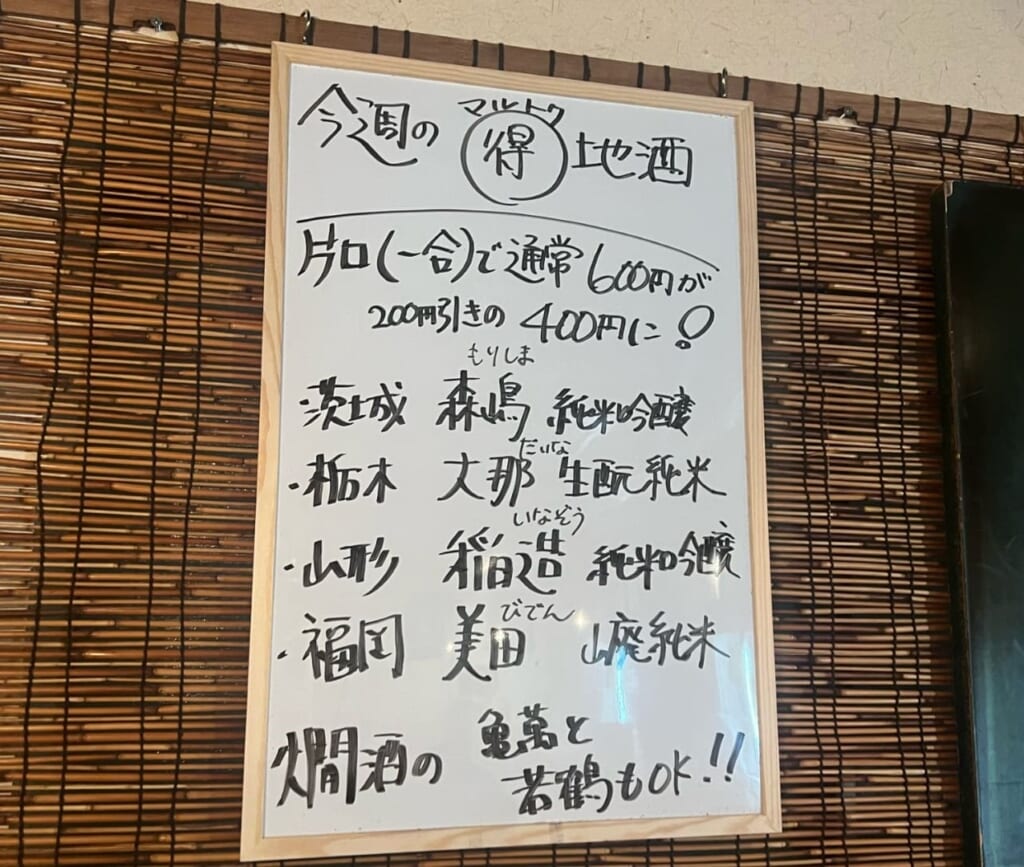 今週の マルトク
得 地酒
片口(一合)で通常600円が
200円引きの 400円に!
もりしま
・茨城 森嶋 純米吟醸
だいな
・栃木 大那 生酛純米
いなぞう
・山形 稲造 純米吟醸
びでん
・福岡 美田 山廃純米
燗酒の 亀萬と
若鶴もOK!!